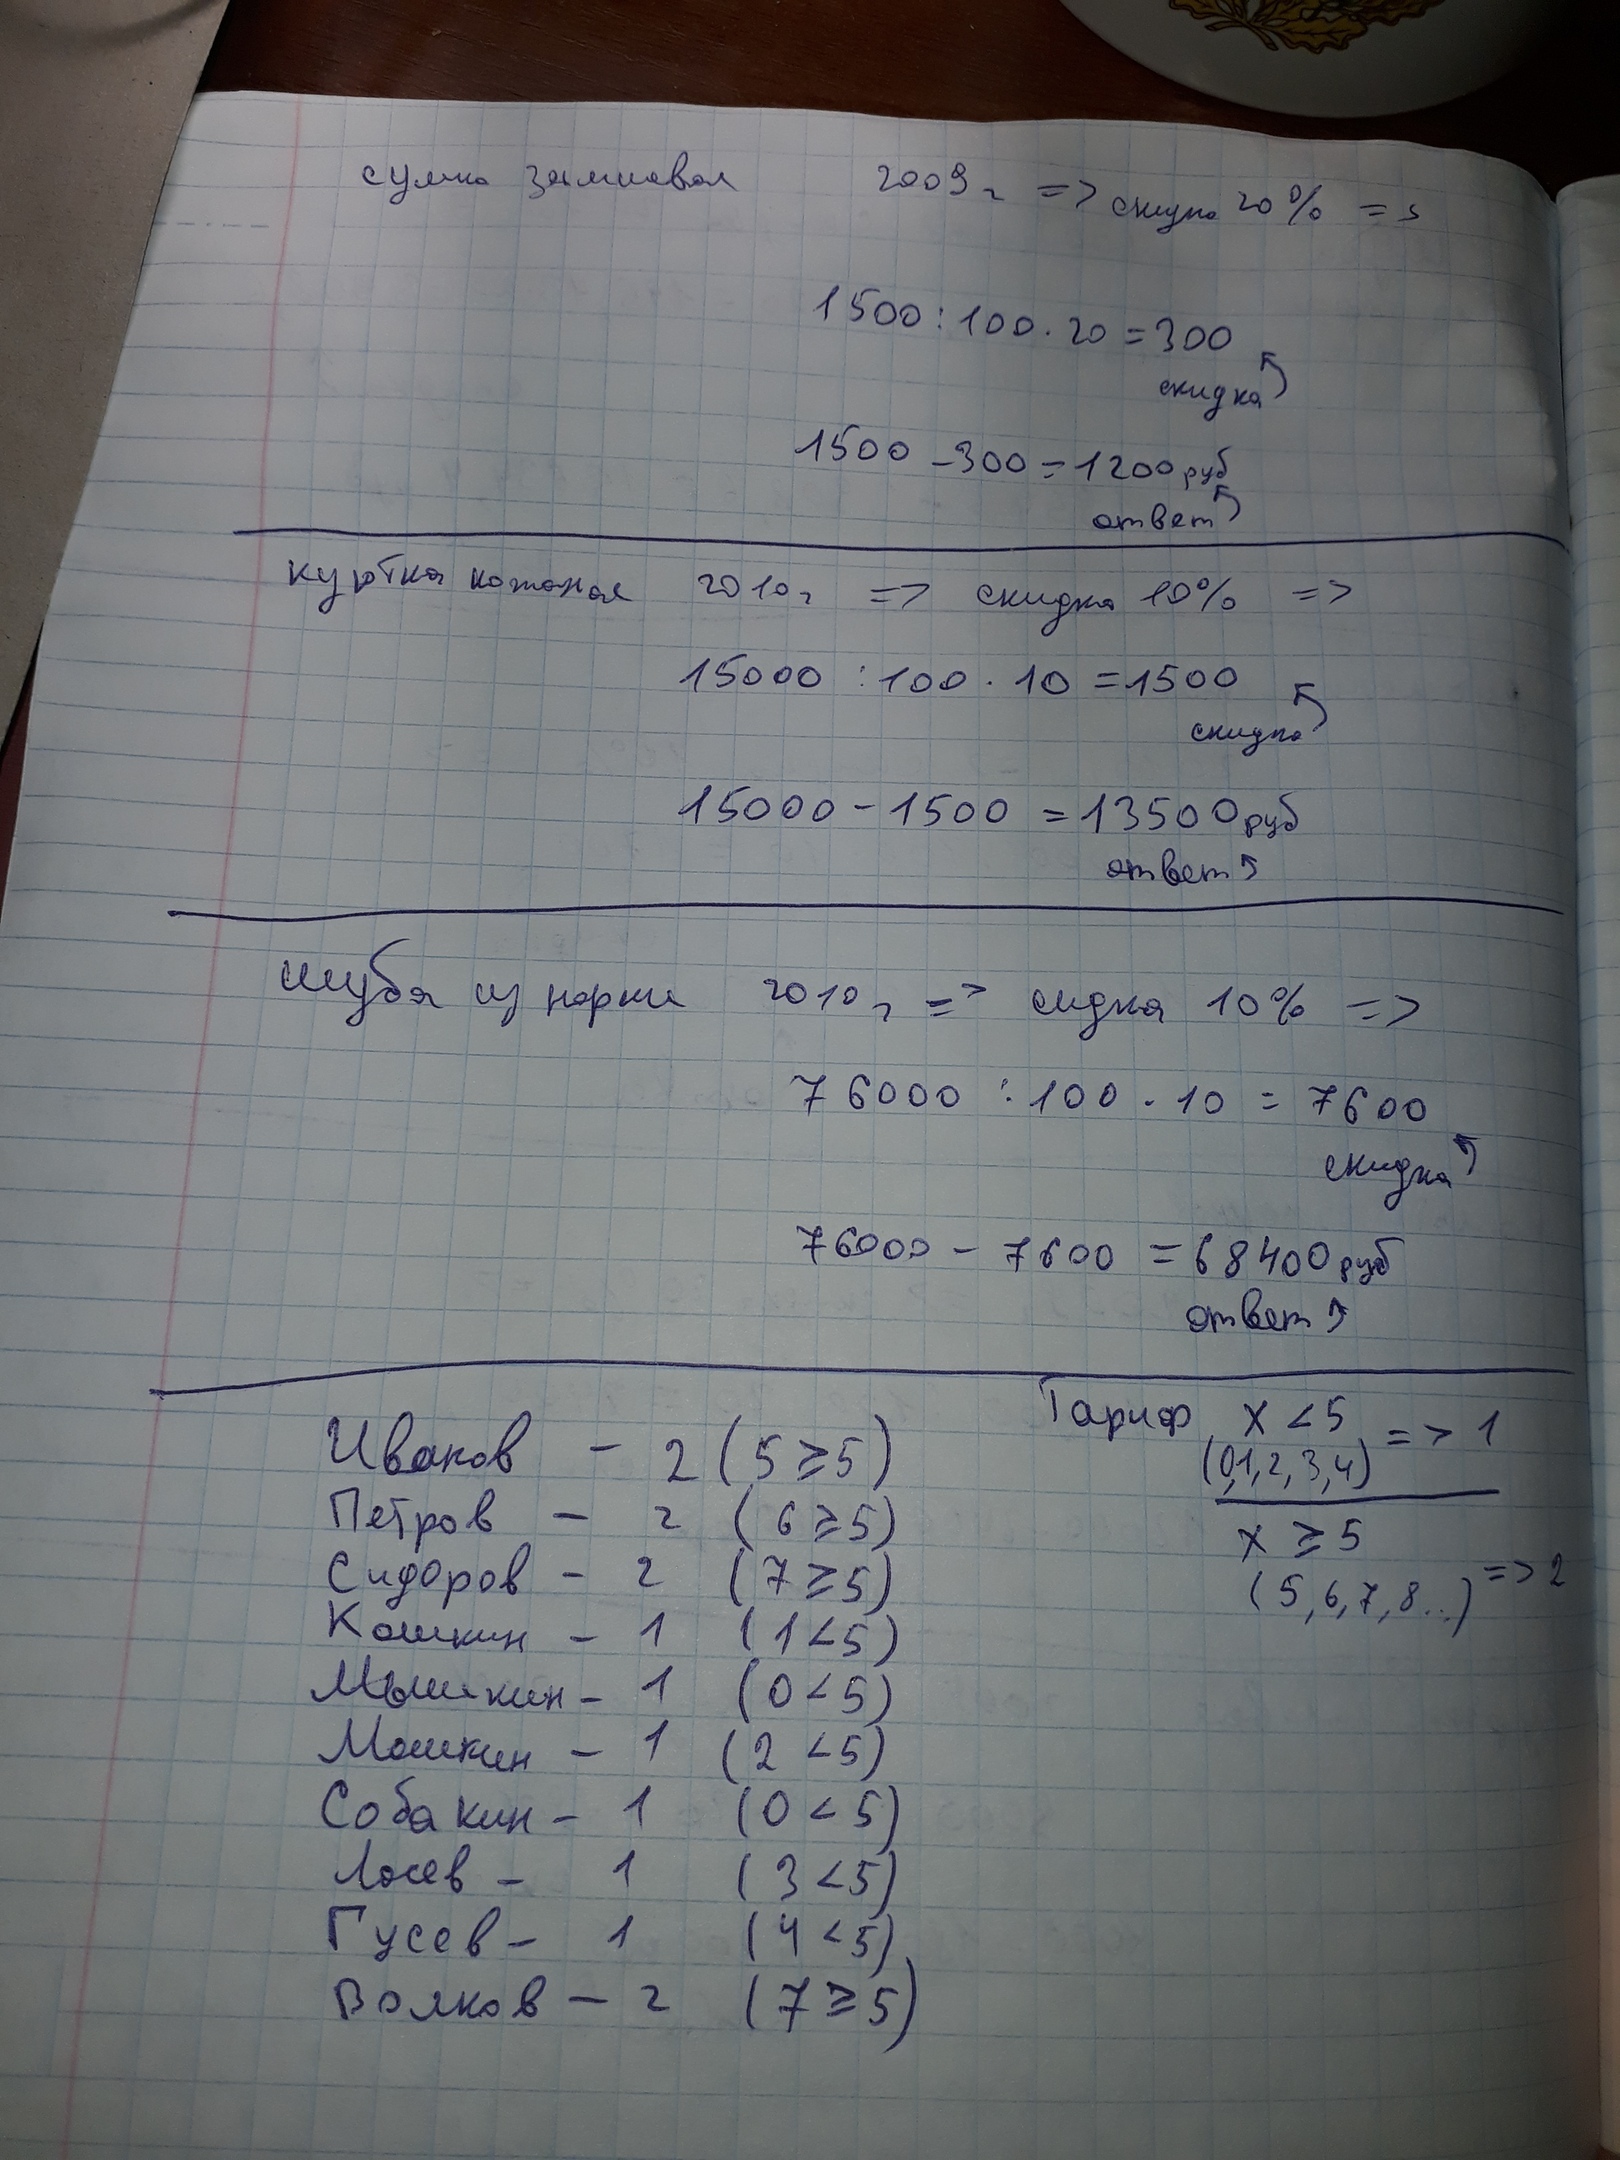 сумка замшевая 2009г => скидка 20% =>
1500 : 100 · 20 = 300
скидка
1500 - 300 = 1200 руб
ответ
куртка кожаная 2010г => скидка 10% =>
15000 : 100 · 10 = 1500
скидка
15000 - 1500 = 13500 руб
ответ
шуба из норки 2010г => сидка 10% =>
76000 : 100 · 10 = 7600
скидка
76000 - 7600 = 68400 руб
ответ
Иванов - 2 (5 ≥ 5)
Петров - 2 (6 ≥ 5)
Сидоров - 2 (7 ≥ 5)
Кошкин - 1 (1 < 5)
Мышкин - 1 (0 < 5)
Мошкин - 1 (2 < 5)
Собакин - 1 (0 < 5)
Лосев - 1 (3 < 5)
Гусев - 1 (4 < 5)
Волков - 2 (7 ≥ 5)
Тариф x < 5 => 1
(0,1,2,3,4)
x ≥ 5 => 2
(5,6,7,8...)